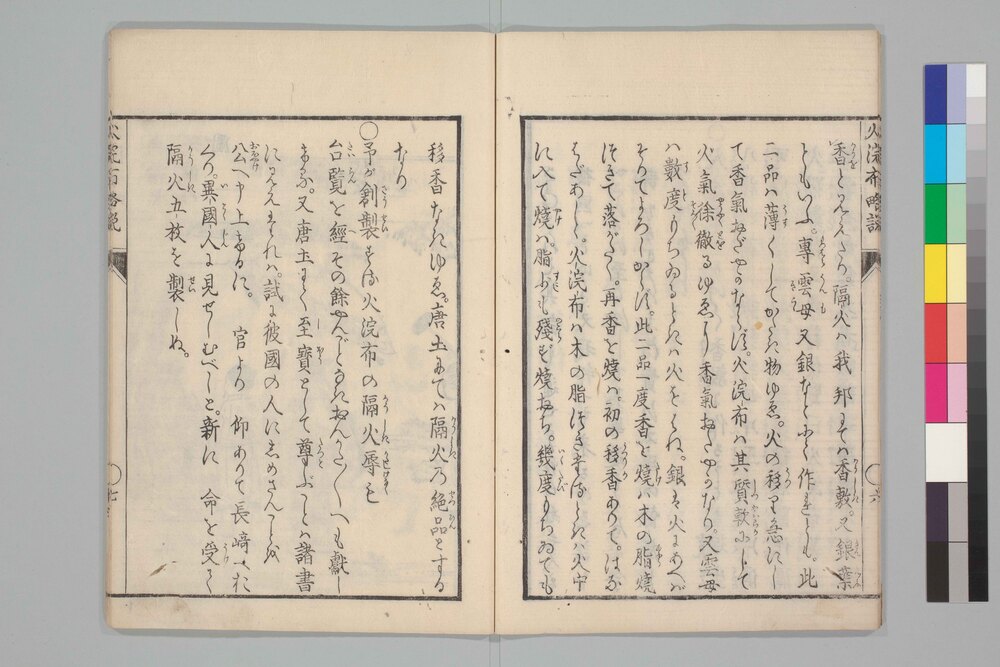 火浣布略説
香とみえたり。隔火ハ我邦にてハ香敷。又銀葉
ともいふ。專雲母又銀などにて作れども。此
二品ハ薄くしてかたき物ゆゑ。火の移り急にし
て香氣おだやかならず。火浣布ハ其質軟にして
火氣徐徹るゆゑに香氣おだやかなり。又雲母
ハ數度もちゐるときハ火をはね。銀ハ火にあへバ
そりてよろしからず。此二品一度香を燒バ木の脂燒
つきて落がたく。再香を燒バ。初の移香ありて。はな
はだあしし。火浣布ハ木の脂つきたるときハ火中
に入て燒バ。脂少も殘ず燒おち。幾度もちゐても
六
移香なきゆゑ。唐土にてハ隔火乃絶品とする
なり
○予が創製する火浣布の隔火辱も
台覽を經その餘やんごとなきおんかた〲へも獻し
まゐ。又唐土にて至寶として尊ぶことハ諸書
にみえたれバ。試に彼國の人にしめさんことを
公へ申上けるに。官より仰ありて長崎
異國人に見せしむべしと。新に命を受て
隔火五枚を製しぬ。
火浣布略説
七